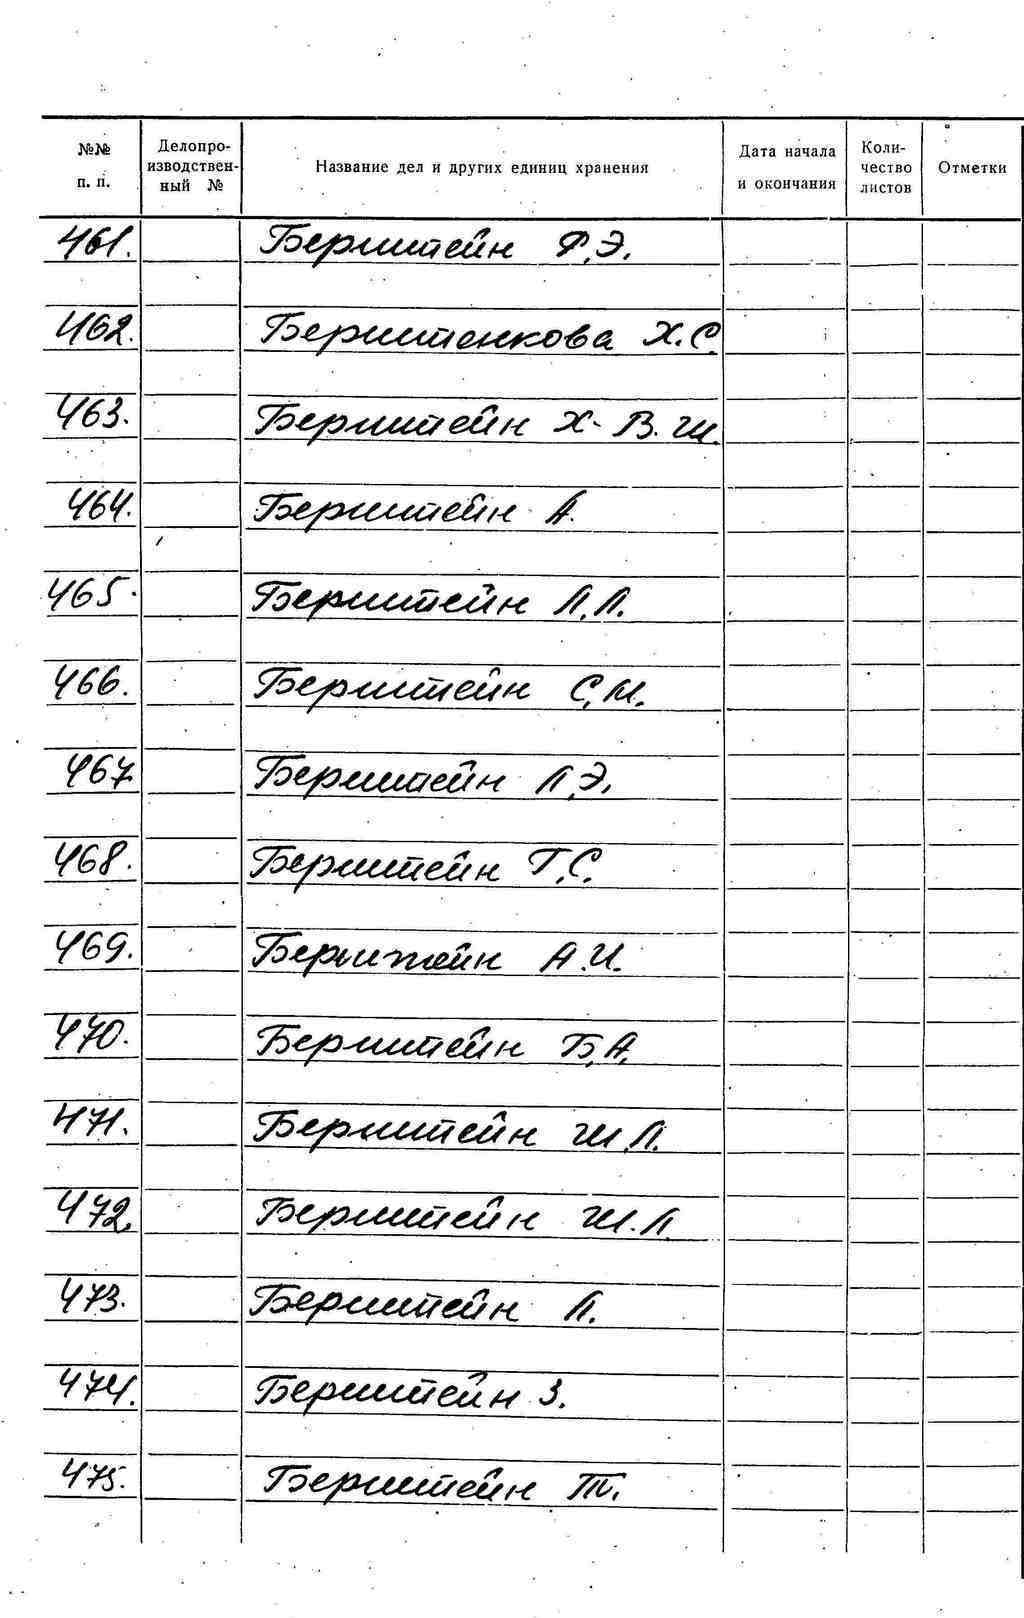 №№ п. п. Делопроизводственный № Название дел и других единиц хранения Дата начала и окончания Количество листов Отметки
461. Берштейн Ф.Э.
462. Берштенкова Х.С.
463. Берштейн Х-В.Ш.
464. Берштейн А.
465. Берштейн Л.Л.
466. Берштейн С.М.
467 Берштейн Л.Э.
468. Берштейн Г.С.
469. Берштейн А.И.
470. Берштейн Б.А.
471. Берштейн Ш.Л.
472. Берштейн Ш.Л.
473. Берштейн Л.
474. Берштейн З.
475. Берштейн Т.